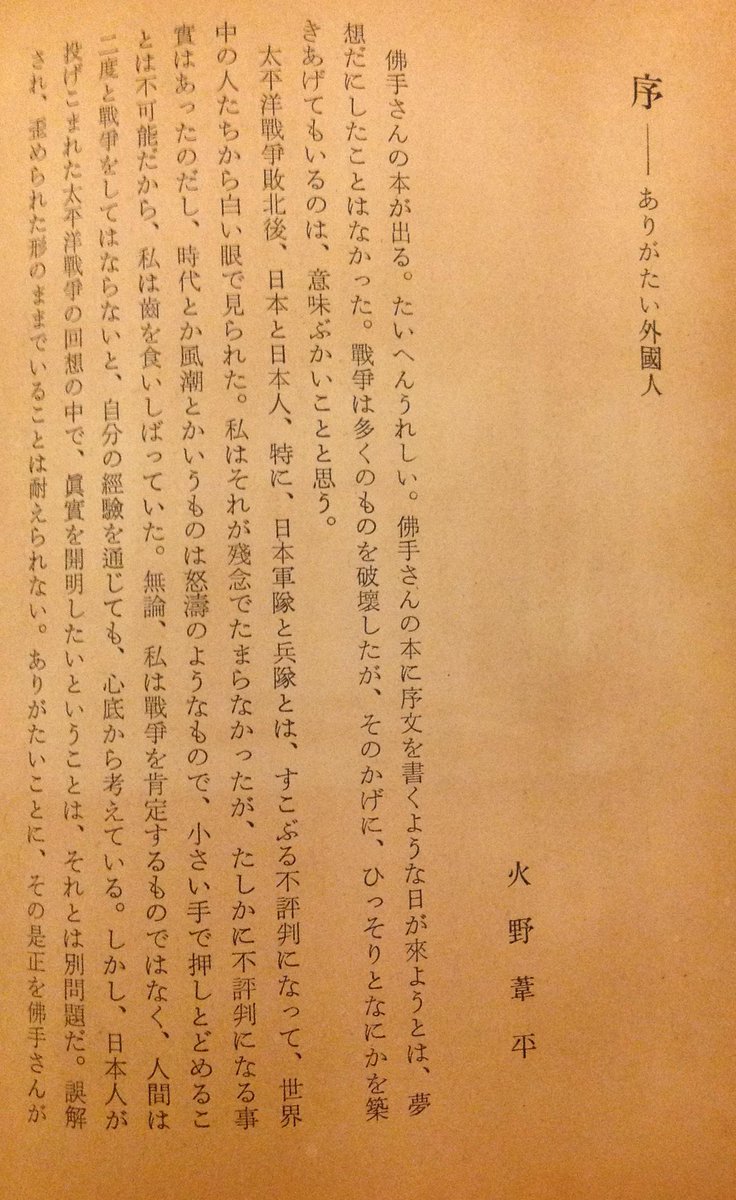 序――ありがたい外國人
火野葦平
佛手さんの本が出る。たいへんうれしい。佛手さんの本に序文を書くような日が來ようとは、夢
想だにしたことはなかった。戰爭は多くのものを破壞したが、そのかげに、ひっそりとなにかを築
きあげてもいるのは、意味ぶかいことと思う。
太平洋戰爭敗北後、日本と日本人、特に、日本軍隊と兵隊とは、すこぶる不評判になって、世界
中の人たちから白い眼で見られた。私はそれが殘念でたまらなかったが、たしかに不評判になる事
實はあったのだし、時代とか風潮とかいうものは怒濤のようなもので、小さい手で押しとどめるこ
とは不可能だから、私は齒を食いしばっていた。無論、私は戰爭を肯定するものではなく、人間は
二度と戰爭をしてはならないと、自分の經驗を通じても、心底から考えている。しかし、日本人が
投げこまれた太平洋戰爭の回想の中で、眞實を開明したいということは、それとは別問題だ。誤解
され、歪められた形のままでいることは耐えられない。ありがたいことに、その是正を佛手さんが